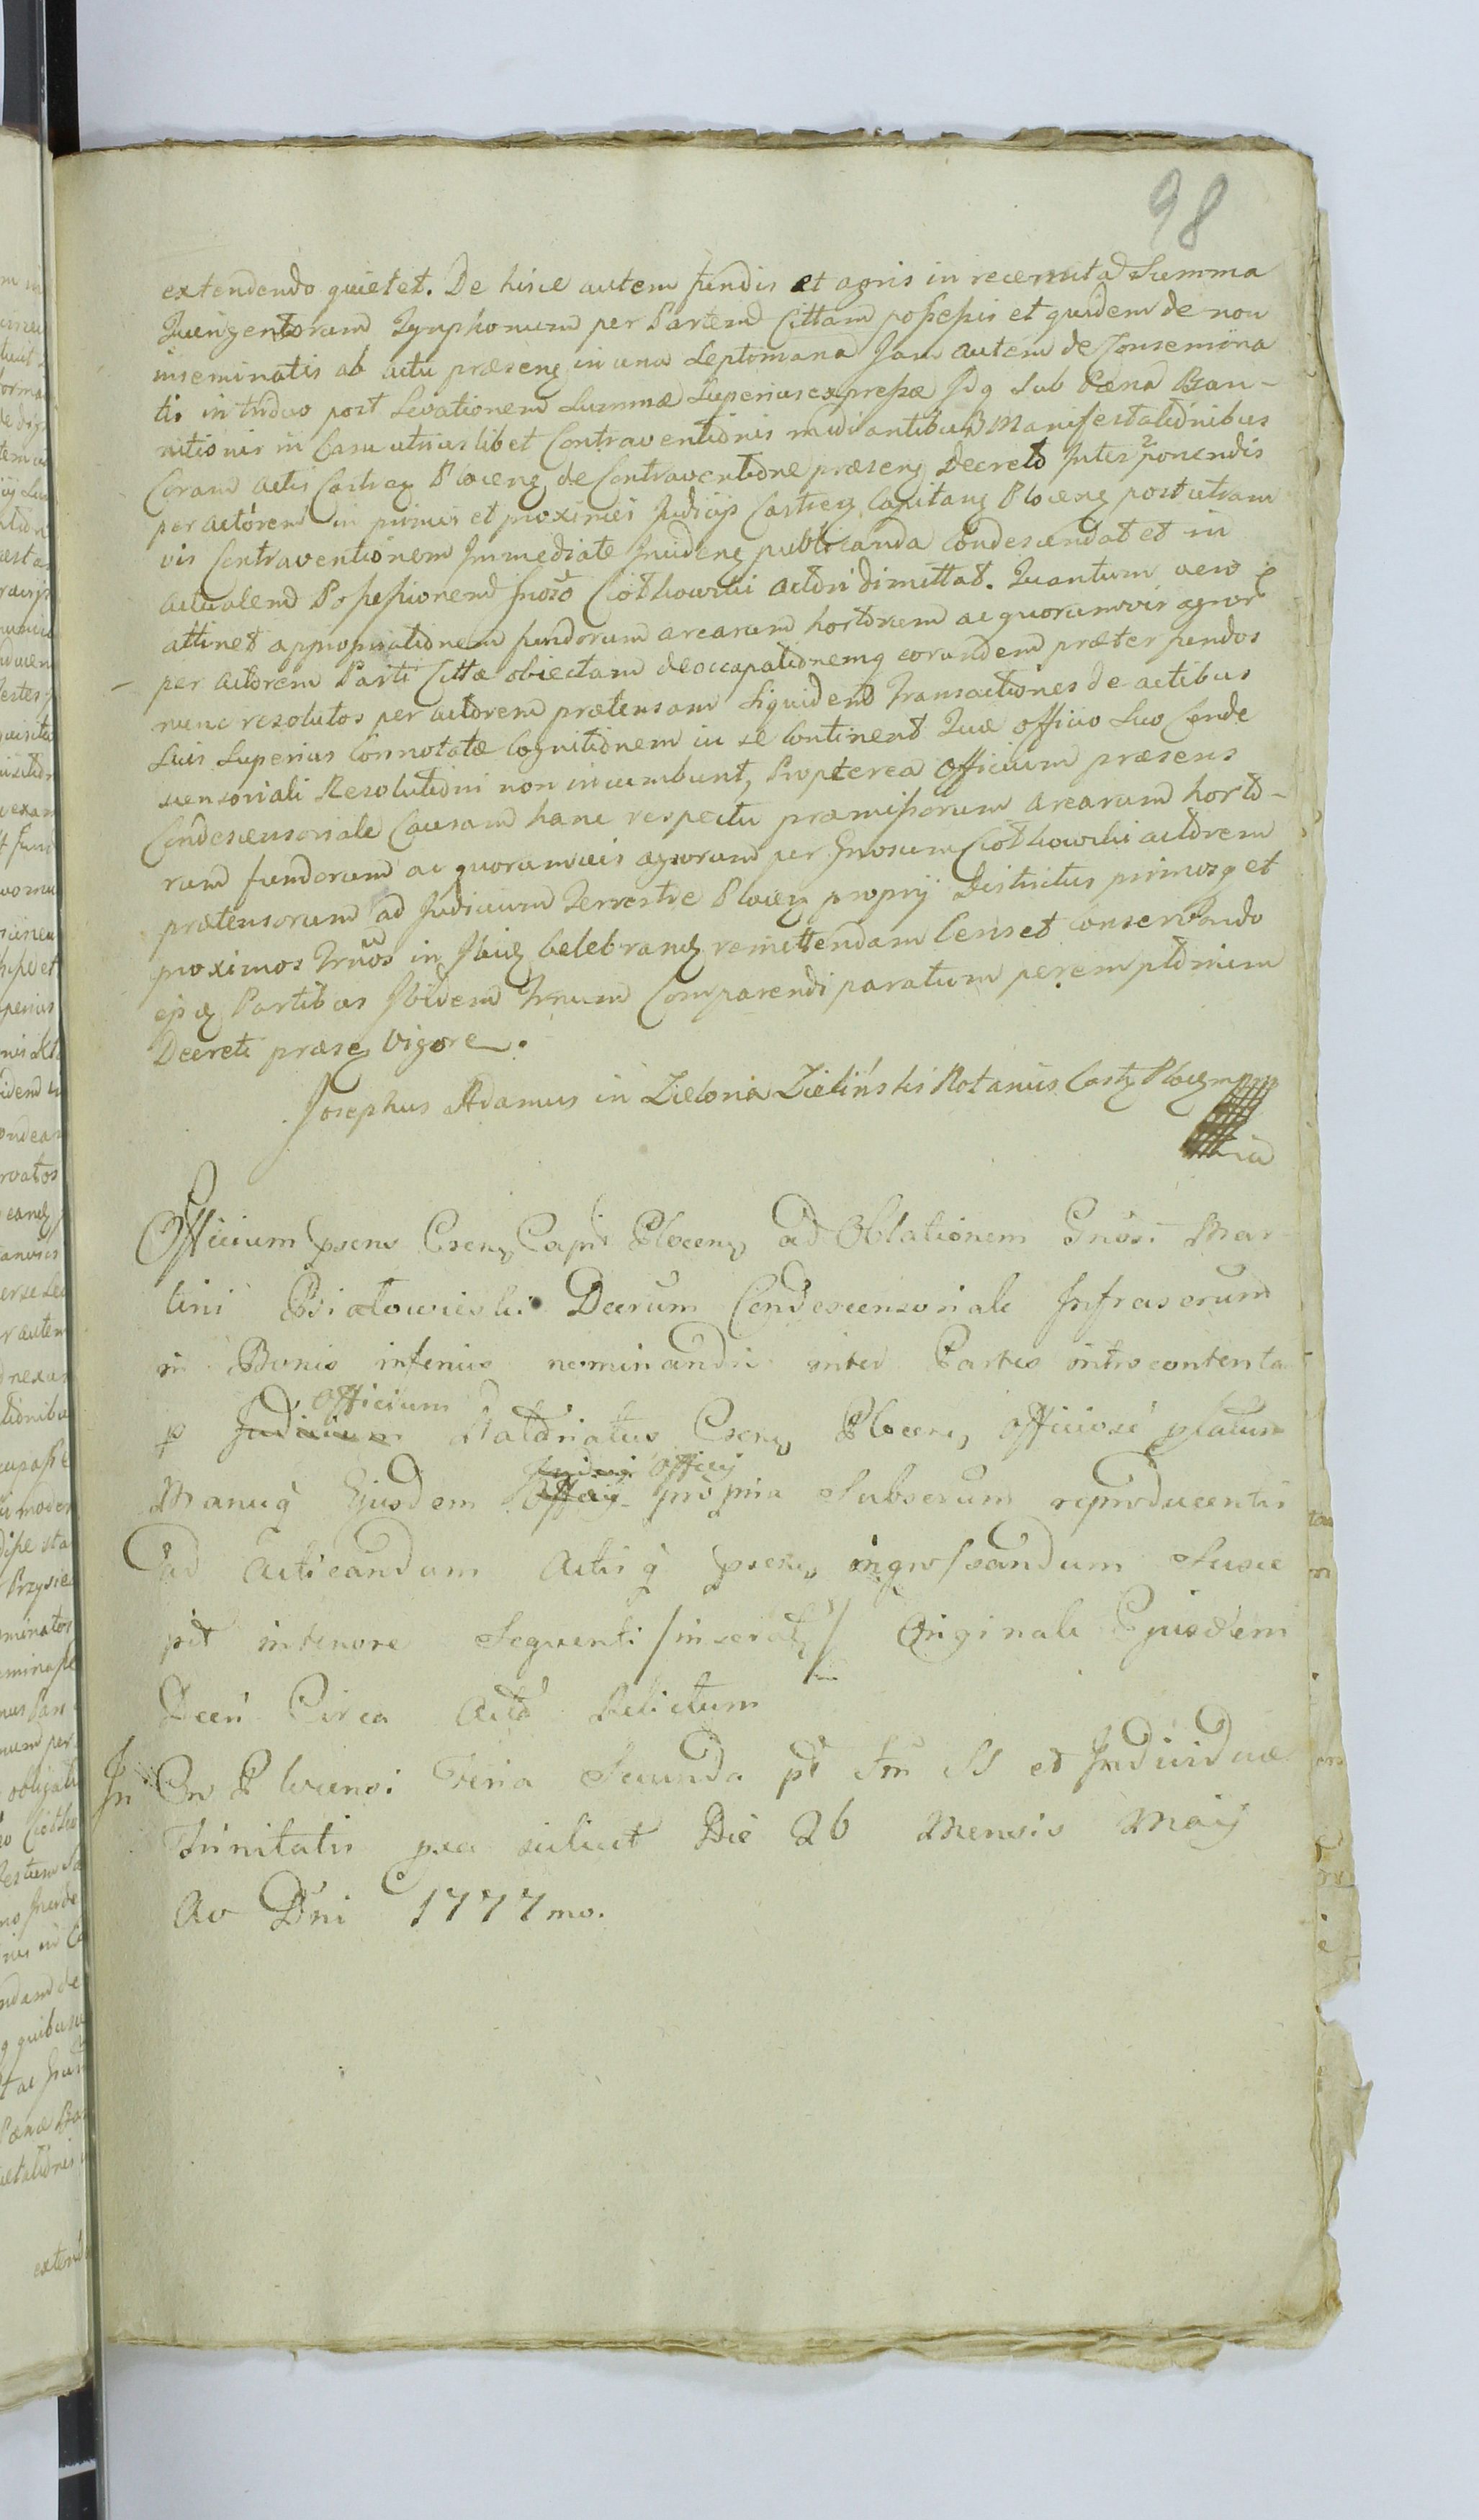 98
extendendo quietet. De hisce autem fundis et agris in recensita Summa
Quingentorum Tymphonum per Partem Cittam possessis et quidem de non
inseminatis ab actu præsenq in una Septimana Jam autem de Consemina
tis in triduo post Levationem Summæ Superius expressæ Idq Sub Pæna Ban-
nitionis in Casu utriuslibet Contraventionis mediantibus Manifestationibus
Coram actis Castreq Plocenq de Contraventione præsenq Decreto Interponendis
per actorem in primis et proximis Judicijs Castrenq Capitanq Plocenq post utram
vis Contraventionem Immediate Incidenq publicanda Condescendat et in
actualem Possessionem Gnoso Ciołkowski actori dimittat. Quantum vero
attinet appropriationem fundorum arearum hortorum ac quorumvis agror
per actorem Parti Cittæ objectam deoccupationemq eorundem præter fundos
nunc resolutos per actorem prætensam Siquidem Transactiones de actibus
Suis Superius Connotatæ Cognitionem in se Continent Quæ officio Suo Conde
scensoriali Resolutioni non incumbunt, Propterea Officium præsens
Condescensoriale Causam hanc respectu præmissorum arearum horto-
rum fundorum ac quorumvis agrorum per Gnosum Ciołkowski actorem
prætensorum ad Judicium Terrestre Plocenq proprij Districtus primosq et
proximos Trnos in Ibidq Celebrandq remittendam Censet conservando
ijsdq Partibus Ibidem Trnum Comparendi paratum peremptorium
Decreti præsenq Vigore.
Josephus Adamus in Zielona Zieliński Notarius Castrq Plocenq mpp
Officium psens Csenq Capit Plocenq ad Oblationem Gnosi Mar
tini Bialowieski Decrum Condescensoriale Infrascrum
in Bonis inferius nominandis inter Partes introcontenta
Officium
p Judicium Notoriatus Csenq Plocenq officiose platum
Officij
Manuq Ejusdem Officij propria Subscrum reproducentis
ad acticandum Actisq psenq ingrossandum Susce
pit intenore Sequenti /inseratq/ Originali Ejusdem
Decri Circa Acta Relictum
In Cro Plocensi Feria Secunda pt Fm SS et Individuæ
Trinitatis pxa scilicet Die 26 Mensis Maij
Ao Dni 1777mo.